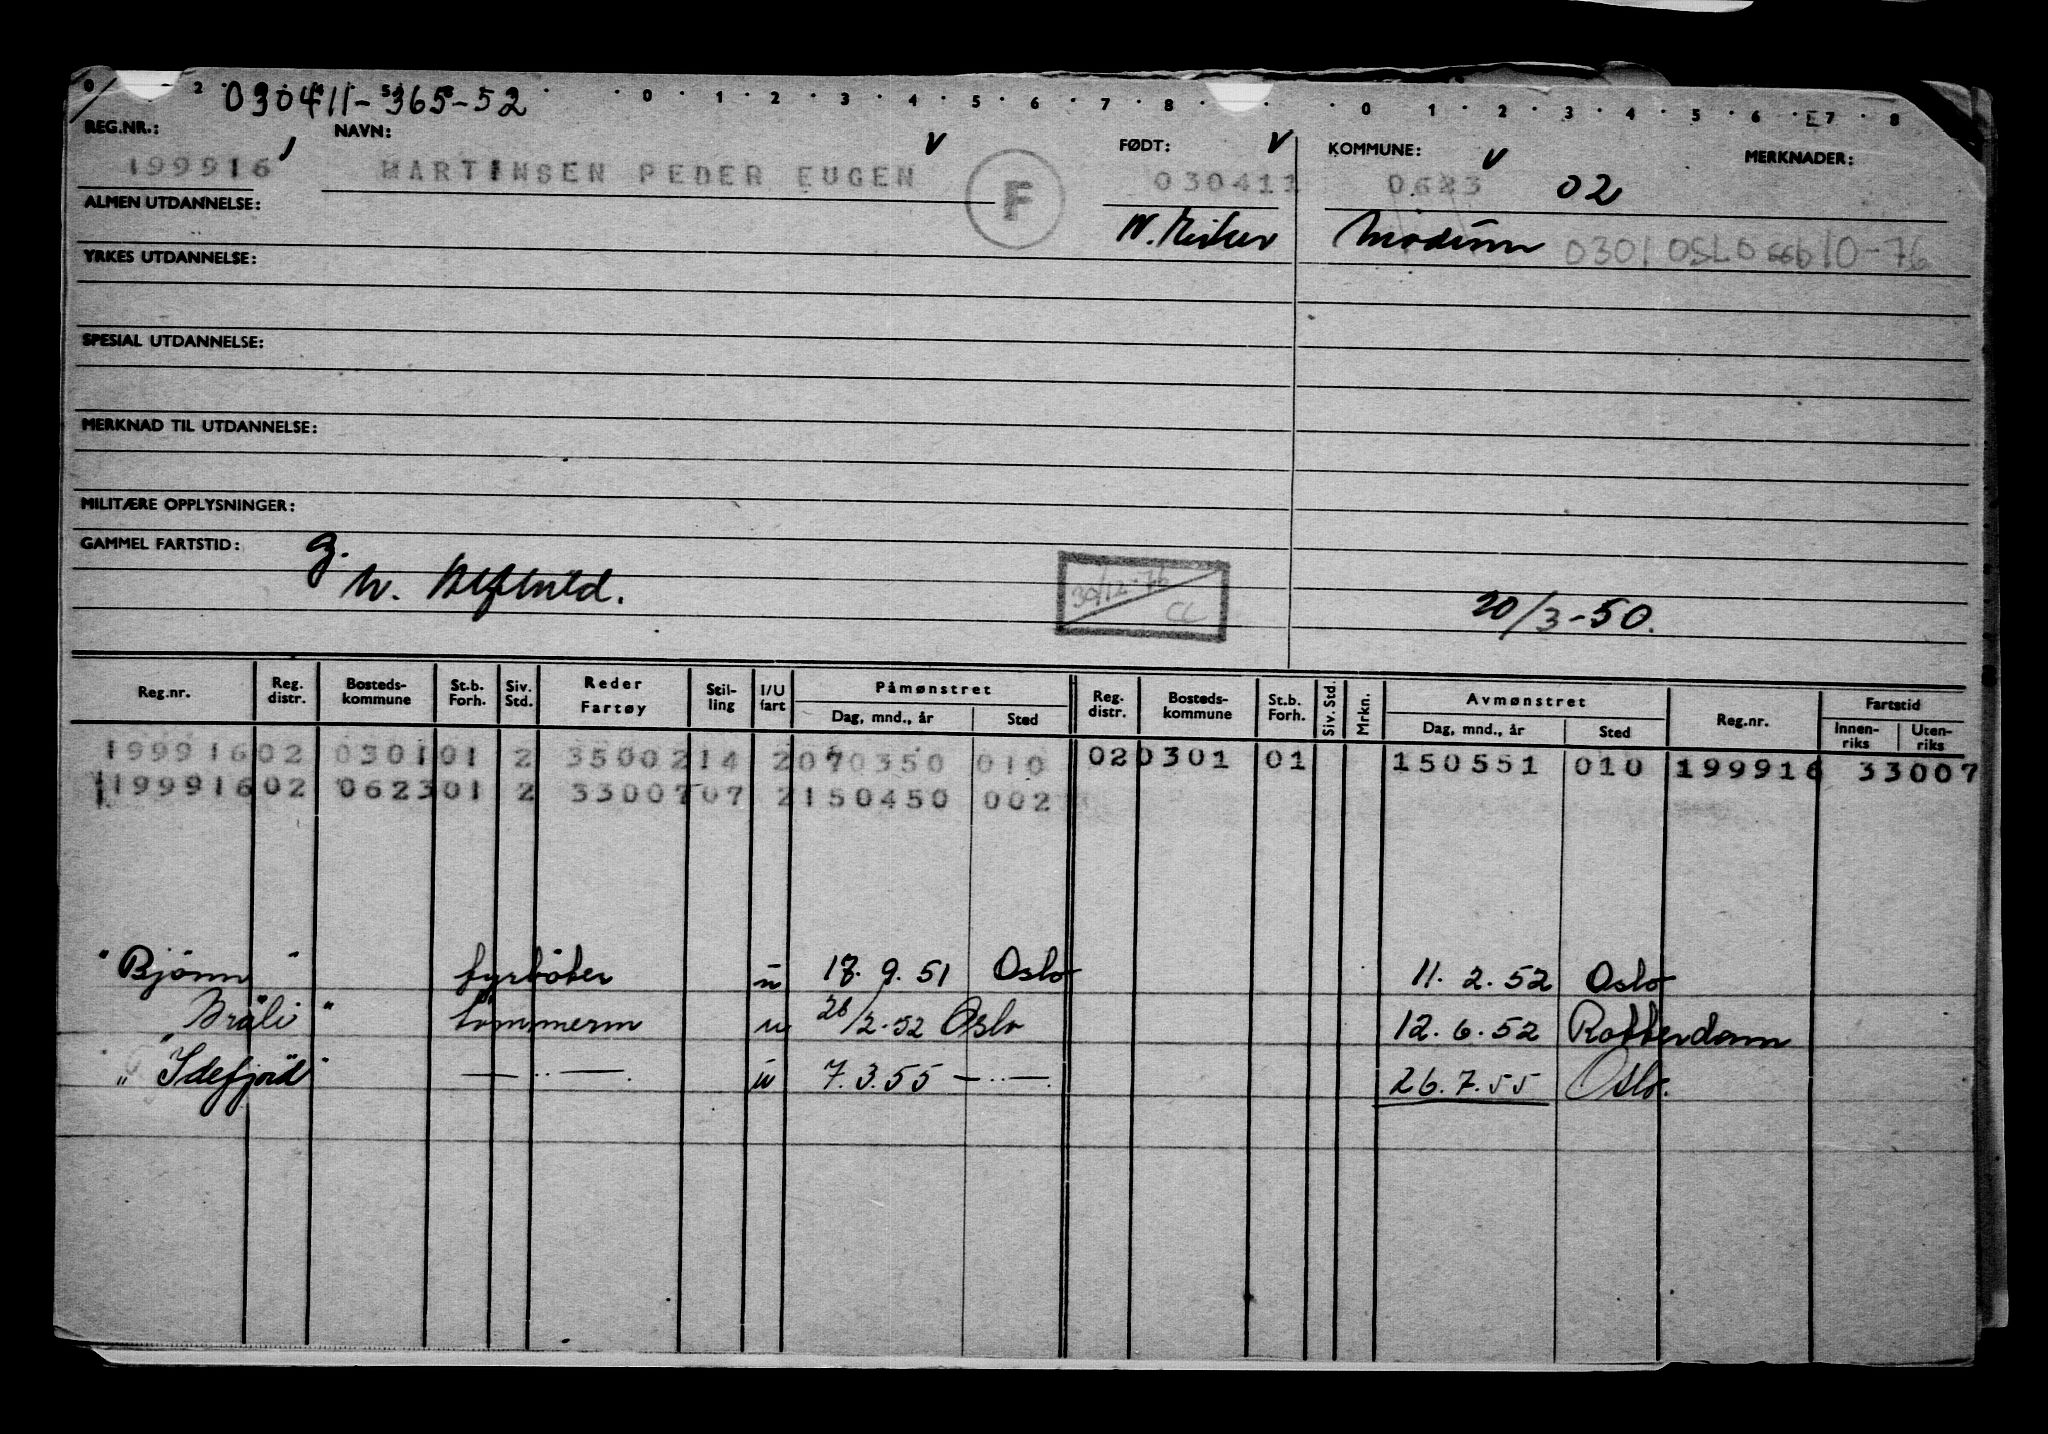 030411-365-52
0 2 4 5 6 0 1 2 3 4 5 6 7 8 0 1 2 3 4 5 6 7 8
REG.NR.: NAVN: FØDT: KOMMUNE: MERKNADER:
199916 MARTINSEN PEDER EUGEN F 030411 0623 02
ALMEN UTDANNELSE: Modum 0301 OSLO 10-76
YRKES UTDANNELSE:
SPESIAL UTDANNELSE:
MERKNAD TIL UTDANNELSE:
MILITÆRE OPPLYSNINGER:
GAMMEL FARTSTID:
30/12-76 CL
20/3-50.
Reg.nr. Reg. distr. Bosteds-kommune St.b. Forh. Siv. Std. Reder Fartøy Stil-ling I/U fart Påmønstret Dag, mnd., år Sted Reg. distr. Bosteds-kommune St.b. Forh. Siv. Std. Mrkn. Avmønstret Dag, mnd., år Sted Reg.nr. Fartstid Innen-riks Uten-riks
199916 02 0301 01 2 35002 14 2 070350 010 02 0301 01 150551 010 199916 33007
199916 02 0623 01 2 33007 07 2 150450 002
"Bjönn" fyrböter u 17.9.51 Oslo 11.2.52 Oslo
tömmerm u 26/2-52 Oslo 12.6.52 Rotterdam
"Idefjord" —„— u 7.3.55 —„— 26.7.55 Oslo.